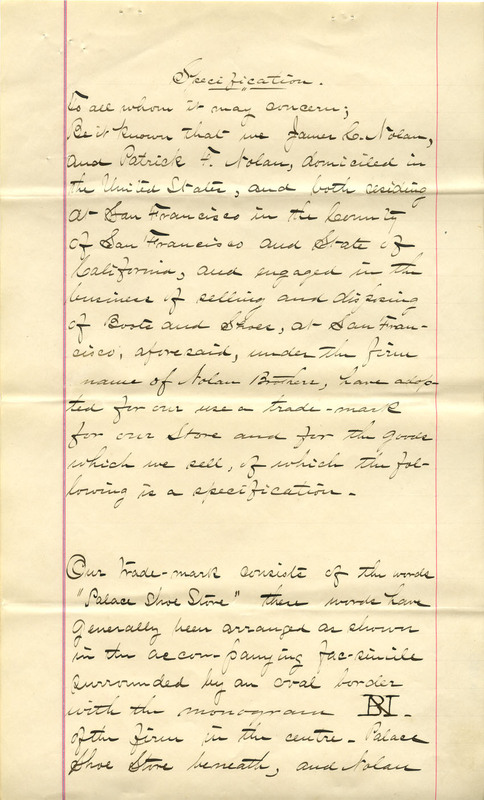 Specification.
To all whom it may concern;
Be it known that we James C. Nolan,
and Patrick F. Nolan, domiciled in
the United States, and both residing
at San Francisco in the County
of San Francisco and State of
California, and engaged in the
business of selling and disposing
of Boots and Shoes, at San Fran-
cisco, aforesaid, under the firm
name of Nolan Brothers, have adop-
ted for our use a trade-mark
for our Store and for the goods
which we sell, of which the fol-
lowing is a specification.-
Our trade-mark consists of the words
"Palace Shoe Store" these words have
generally been arranged as shown
in the accom-panying fac-simile
surrounded by an oval border
with the monogram BN.
of the firm in the centre - Palace
Shoe Store beneath, and Nolan